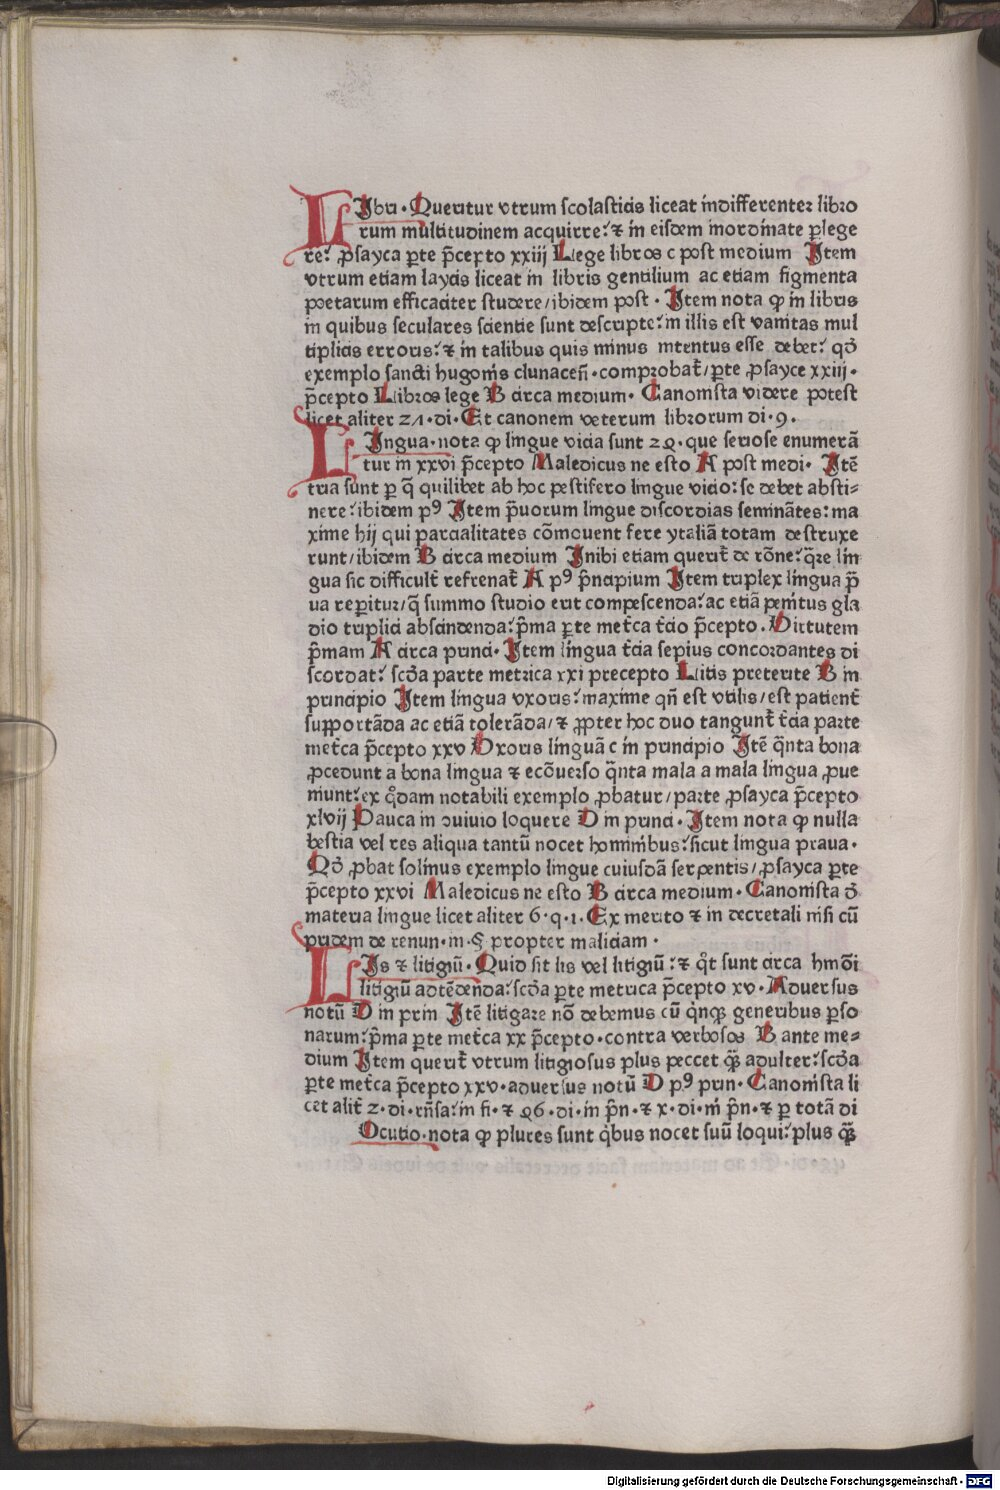 LIbri · Queritur vtrum scolasticis liceat indifferenter libro
rum multitudinem acquirere: ⁊ in eisdem inordinate ꝑlege
re: ꝓsayca ꝑte p̄cepto xxiij Lege libros c post medium Item
vtrum etiam laycis liceat in libris gentilium ac etiam figmenta
poetarum efficaciter studere/ibidem post · Item nota ꝙ in libris
in quibus seculares scientie sunt descripte: in illis est vanitas mul
tiplicis erroris: ⁊ in talibus quis minus intentus esse debet: qđ
exemplo sancti hugonis clunaceñ · comprobat̄/ꝑte ꝓsayce xxiij ·
p̄cepto Libros lege B circa medium · Canonista videre potest
licet aliter 21 · di · Et canonem veterum librorum di · 9 ·
LIngua · nota ꝙ lingue vicia sunt 24 · que seriose enumerā
tur in xxvi p̄cepto Maledicus ne esto A post medi · Itē
tria sunt ꝑ q̄ quilibet ab hoc pestifero lingue vicio: se debet absti-
nere: ibidem pꝰ Item p̄uorum lingue discordias seminātes: ma
xime hij qui parcialitates cōmouent fere ytaliā totam destruxe
runt/ibidem B circa medium Inibi etiam querit̄ de rōne: q̄re lin
gua sic difficult̄ refrenat̄ A pꝰ p̄ncipium Item triplex lingua p̄
ua reperitur/q̄ summo studio erit compescenda: ac etiā penitus gla
dio triplici abscindenda: p̄ma ꝑte met̄ca t̄cio p̄cepto · Virtutem
p̄mam A circa princi · Item lingua t̄cia sepius concordantes di
scordat: scđa parte metrica xxi precepto Litis preterite B in
principio Item lingua vxoris: maxime qn̄ est vtilis/est patient̄
supportāda ac etiā tolerāda/⁊ ꝓpter hoc duo tangunt̄ t̄cia parte
met̄ca p̄cepto xxv Vxoris linguā c in principio Itē q̄nta bona
ꝓcedunt a bona lingua ⁊ ecōuerso q̄nta mala a mala lingua ꝓue
niunt: ex q̊dam notabili exemplo ꝓbatur/parte ꝓsayca p̄cepto
xlvij Pauca in ↄuiuio loquere D in princi · Item nota ꝙ nulla
bestia vel res aliqua tantū nocet hominibus: sicut lingua praua ·
Qđ ꝓbat solinus exemplo lingue cuiusdā serpentis/ꝓsayca ꝑte
p̄cepto xxvi Maledicus ne esto B circa medium · Canonista đ
materia lingue licet aliter 6 · q · 1 · Ex merito ⁊ in decretali nisi cū
pridem de renun · in · § propter maliciam ·
LIs ⁊ litigiū · Quid sit lis vel litigiū: ⁊ q̊t sunt circa hmōi
litigiū adtēdenda: scđa ꝑte metrica p̄cepto xv · Aduersus
notū D in prin Itē litigare nō debemus cū q̇nqꝫ generibus ꝑso
narum: p̄ma ꝑte met̄ca xx p̄cepto · contra verbosos B ante me-
dium Item querit̄ vtrum litigiosus plus peccet qꝫ̄ adulter: scđa
ꝑte met̄ca p̄cepto xxv · aduersus notū D pꝰ prin · Canonista li
cet alit̄ 2 · di · rn̄sa: in fi · ⁊ 46 · di · in p̄n · ⁊ x · di · in p̄n · ⁊ ꝑ totā di
Ocutio · nota ꝙ plures sunt q̇bus nocet suū loqui: plus qꝫ̄
Digitalisierung gefördert durch die Deutsche Forschungsgemeinschaft - DFG